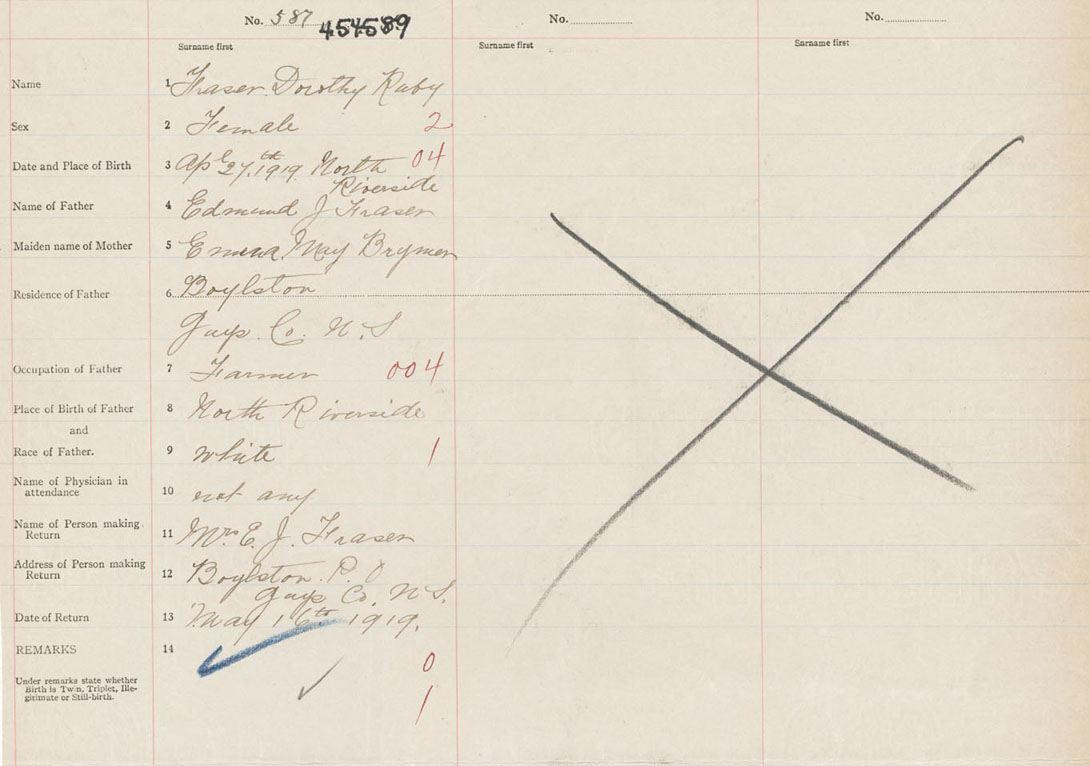 No. 587 454589 No. No.
Surname first Surname first Surname first
Name 1 Fraser Dorothy Ruby
Sex 2 Female 2
Date and Place of Birth 3 Apl 27th 1919 North 04
Riverside
Name of Father 4 Edmund J Fraser
Maiden name of Mother 5 Emma May Brymer
Residence of Father 6 Boylston
Guys. Co. N. S
Occupation of Father 7 Farmer 004
Place of Birth of Father 8 North Riverside
and
Race of Father. 9 White 1
Name of Physician in
attendance 10 not any
Name of Person making
Return 11 Mrs E. J. Fraser
Address of Person making
Return 12 Boylston P. O
Guys Co, N. S.
Date of Return 13 May 16th 1919.
REMARKS 14
0
Under remarks state whether
Birth is Twin, Triplet, Ille-
gitimate or Still-birth.
1